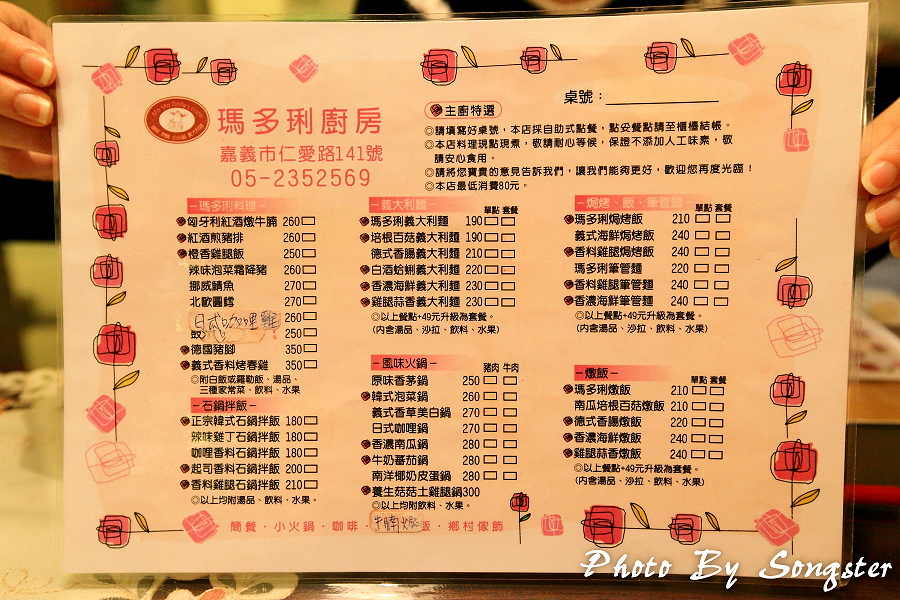 Ma Ma Dolly's
瑪多琍廚房
嘉義市仁愛路141號
05-2352569
主廚特選
桌號：
◎請填寫好桌號，本店採自助式點餐，點妥餐點請至櫃檯結帳。
◎本店料理現點現煮，敬請耐心等候，保證不添加人工味素，敬
請安心食用。
◎請將您寶貴的意見告訴我們，讓我們能夠更好，歡迎您再度光臨！
◎本店最低消費80元。
－瑪多琍料理－
匈牙利紅酒燉牛腩 260
紅酒煎豬排 260
橙香雞腿飯 250
辣味泡菜霜降豬 260
挪威鯖魚 270
北歐圓鱈 270
日式咖哩雞 260
飯 250
德國豬腳 350
義式香料烤春雞 350
◎附白飯或蘿勒飯、湯品、
三種家常菜、飲料、水果
－石鍋拌飯－
正宗韓式石鍋拌飯 180
辣味雞丁石鍋拌飯 180
咖哩香料石鍋拌飯 180
起司香料石鍋拌飯 200
香料雞腿石鍋拌飯 210
◎以上均附湯品、飲料、水果。
－義大利麵－ 單點 套餐
瑪多琍義大利麵 190
培根百菇義大利麵 190
德式香腸義大利麵 210
白酒蛤蜊義大利麵 220
香濃海鮮義大利麵 230
雞腿蒜香義大利麵 230
◎以上餐點+49元升級為套餐。
(內含湯品、沙拉、飲料、水果)
－風味火鍋－ 豬肉 牛肉
原味香茅鍋 250
韓式泡菜鍋 260
義式香草美白鍋 270
日式咖哩鍋 270
香濃南瓜鍋 280
牛奶蕃茄鍋 280
南洋椰奶皮蛋鍋 280
養生菇菇土雞腿鍋300
◎以上均附飲料、水果。
－焗烤、飯、筆管麵－ 單點 套餐
瑪多琍焗烤飯 210
義式海鮮焗烤飯 240
香料雞腿焗烤飯 240
瑪多琍筆管麵 220
香料雞腿筆管麵 240
香濃海鮮筆管麵 240
◎以上餐點+49元升級為套餐。
(內含湯品、沙拉、飲料、水果)
－燉飯－ 單點 套餐
瑪多琍燉飯 210
南瓜培根百菇燉飯 210
德式香腸燉飯 220
香濃海鮮燉飯 240
雞腿蒜香燉飯 240
◎以上餐點+49元升級為套餐。
(內含湯品、沙拉、飲料、水果)
簡餐·小火鍋·咖啡· 牛腩 飯·鄉村傢飾
Photo By Songster